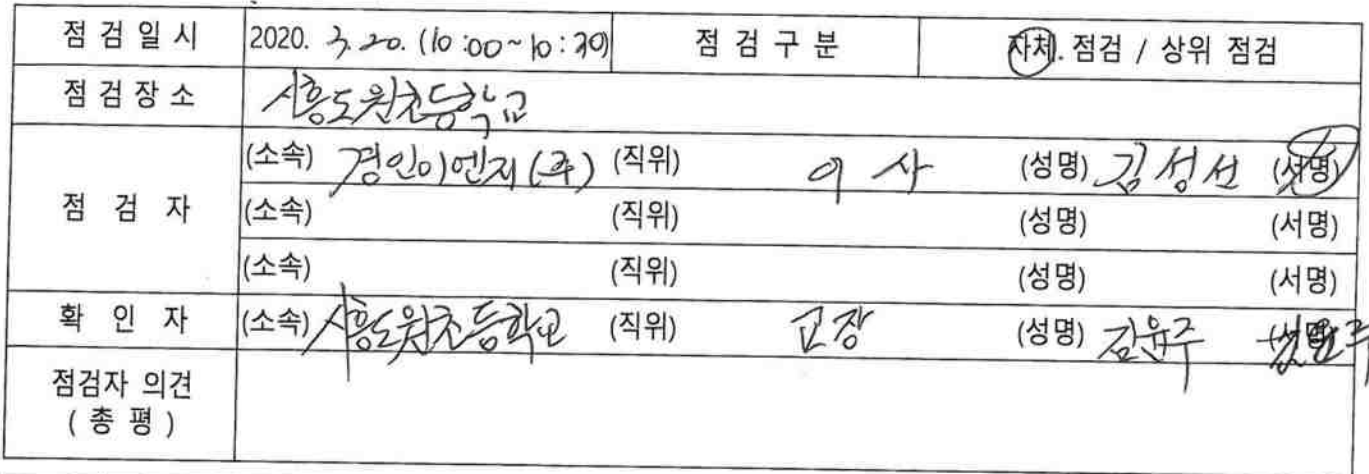 점 검 일 시 2020. 3. 20. (10:00~10:30) 점 검 구 분 자체. 점검 / 상위 점검
점 검 장 소 시흥도원초등학교
(소속) 경인이엔지(주) (직위) 이 사 (성명) 김성선 (서명)
점 검 자 (소속) (직위) (성명) (서명)
(소속) (직위) (성명) (서명)
확 인 자 (소속) 시흥도원초등학교 (직위) 교장 (성명) 김윤주 (서명)
점검자 의견
( 총 평 )